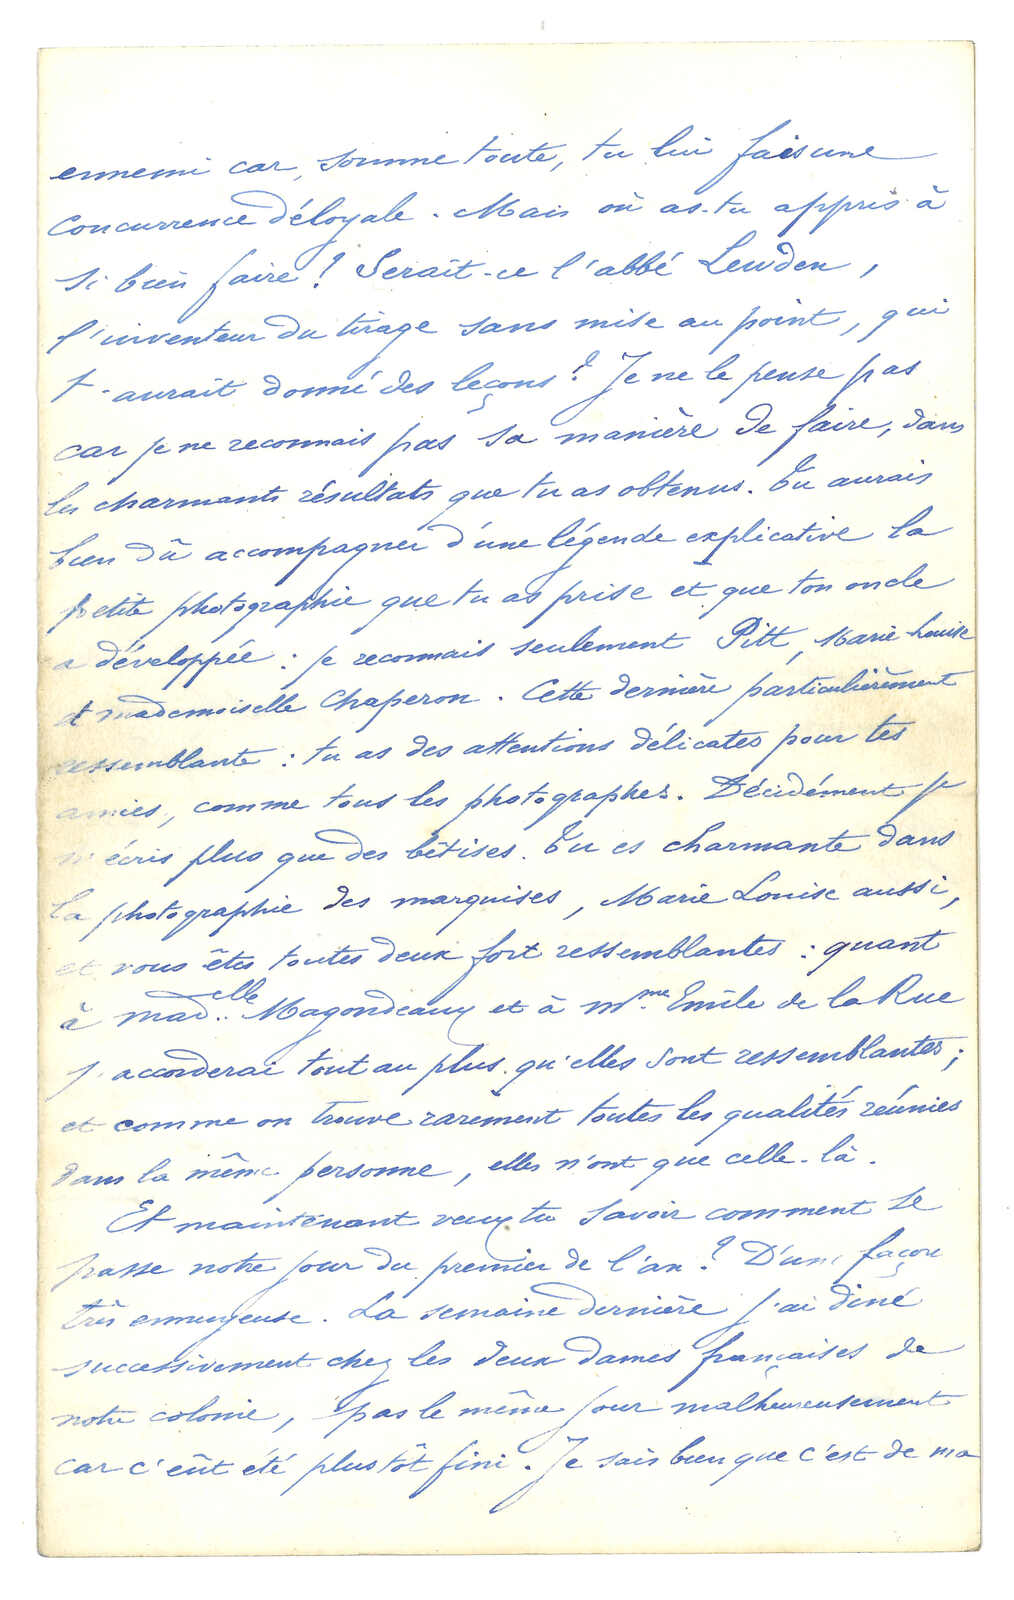 ennemi car, somme toute, tu lui fais une
concurrence déloyale. Mais où as-tu appris à
si bien faire ? Serait-ce l'abbé Lewden,
l'inventeur du tirage sans mise au point, qui
t'aurait donné des leçons ? Je ne le pense pas
car je ne reconnais pas sa manière de faire, dans
les charmants résultats que tu as obtenus. Tu aurais
bien dû accompagner d'une légende explicative la
petite photographie que tu as prise et que ton oncle
a développée : je reconnais seulement Pitt, Marie Louise
et mademoiselle Chaperon. Cette dernière particulièrement
ressemblante : tu as des attentions délicates pour tes
amies, comme tous les photographes. Décidément je
n'écris plus que des bêtises. Tu es charmante dans
la photographie des marquises, Marie Louise aussi,
et vous êtes toutes deux fort ressemblantes : quant
à mad.elle Magondeaux et à Mme Emile de la Rue
j'accorderai tout au plus qu'elles sont ressemblantes ;
et comme on trouve rarement toutes les qualités réunies
dans la même personne, elles n'ont que celle-là.
Et maintenant veux tu savoir comment se
passe notre jour du premier de l'an ? D'une façon
très ennuyeuse. La semaine dernière j'ai diné
successivement chez les deux dames françaises de
notre colonie, pas le même jour malheureusement
car c'eût été plus tôt fini. Je sais bien que c'est de ma